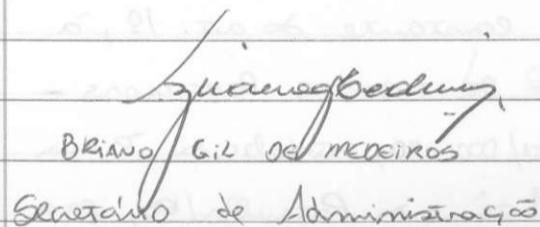 BRIANO GIL DE MEDEIROS
Secretário de Administração